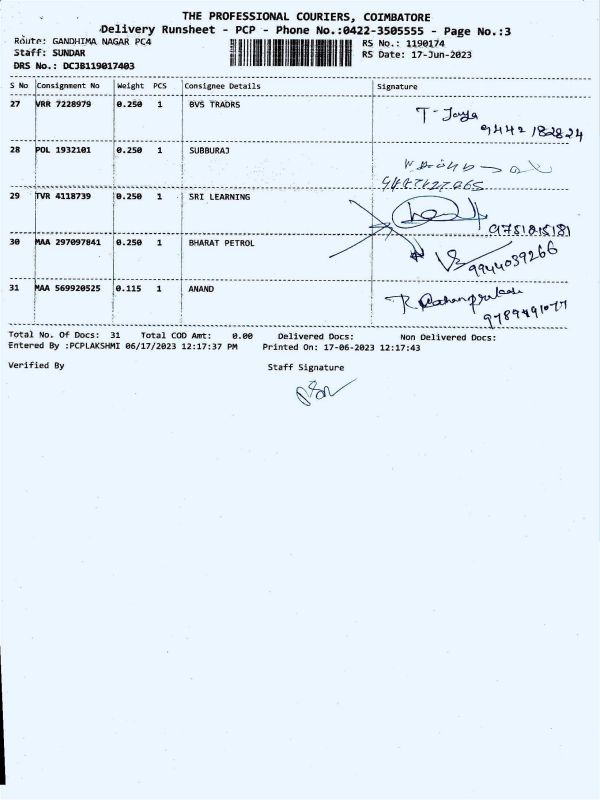 THE PROFESSIONAL COURIERS, COIMBATORE
Delivery Runsheet - PCP - Phone No.:0422-3505555 - Page No.:3
Route: GANDHIMA NAGAR PC4 RS No.: 1190174
Staff: SUNDAR RS Date: 17-Jun-2023
DRS No.: DCJB119017403
S No Consignment No Weight PCS Consignee Details Signature
27 VRR 7228979 0.250 1 BVS TRADRS T. Jaya
9442182824
28 POL 1932101 0.250 1 SUBBURAJ
29 TVR 4118739 0.250 1 SRI LEARNING
9751815181
30 MAA 297097841 0.250 1 BHARAT PETROL
9944039266
31 MAA 569920525 0.115 1 ANAND
9789491077
Total No. Of Docs: 31 Total COD Amt: 0.00 Delivered Docs: Non Delivered Docs:
Entered By :PCPLAKSHMI 06/17/2023 12:17:37 PM Printed On: 17-06-2023 12:17:43
Verified By Staff Signature